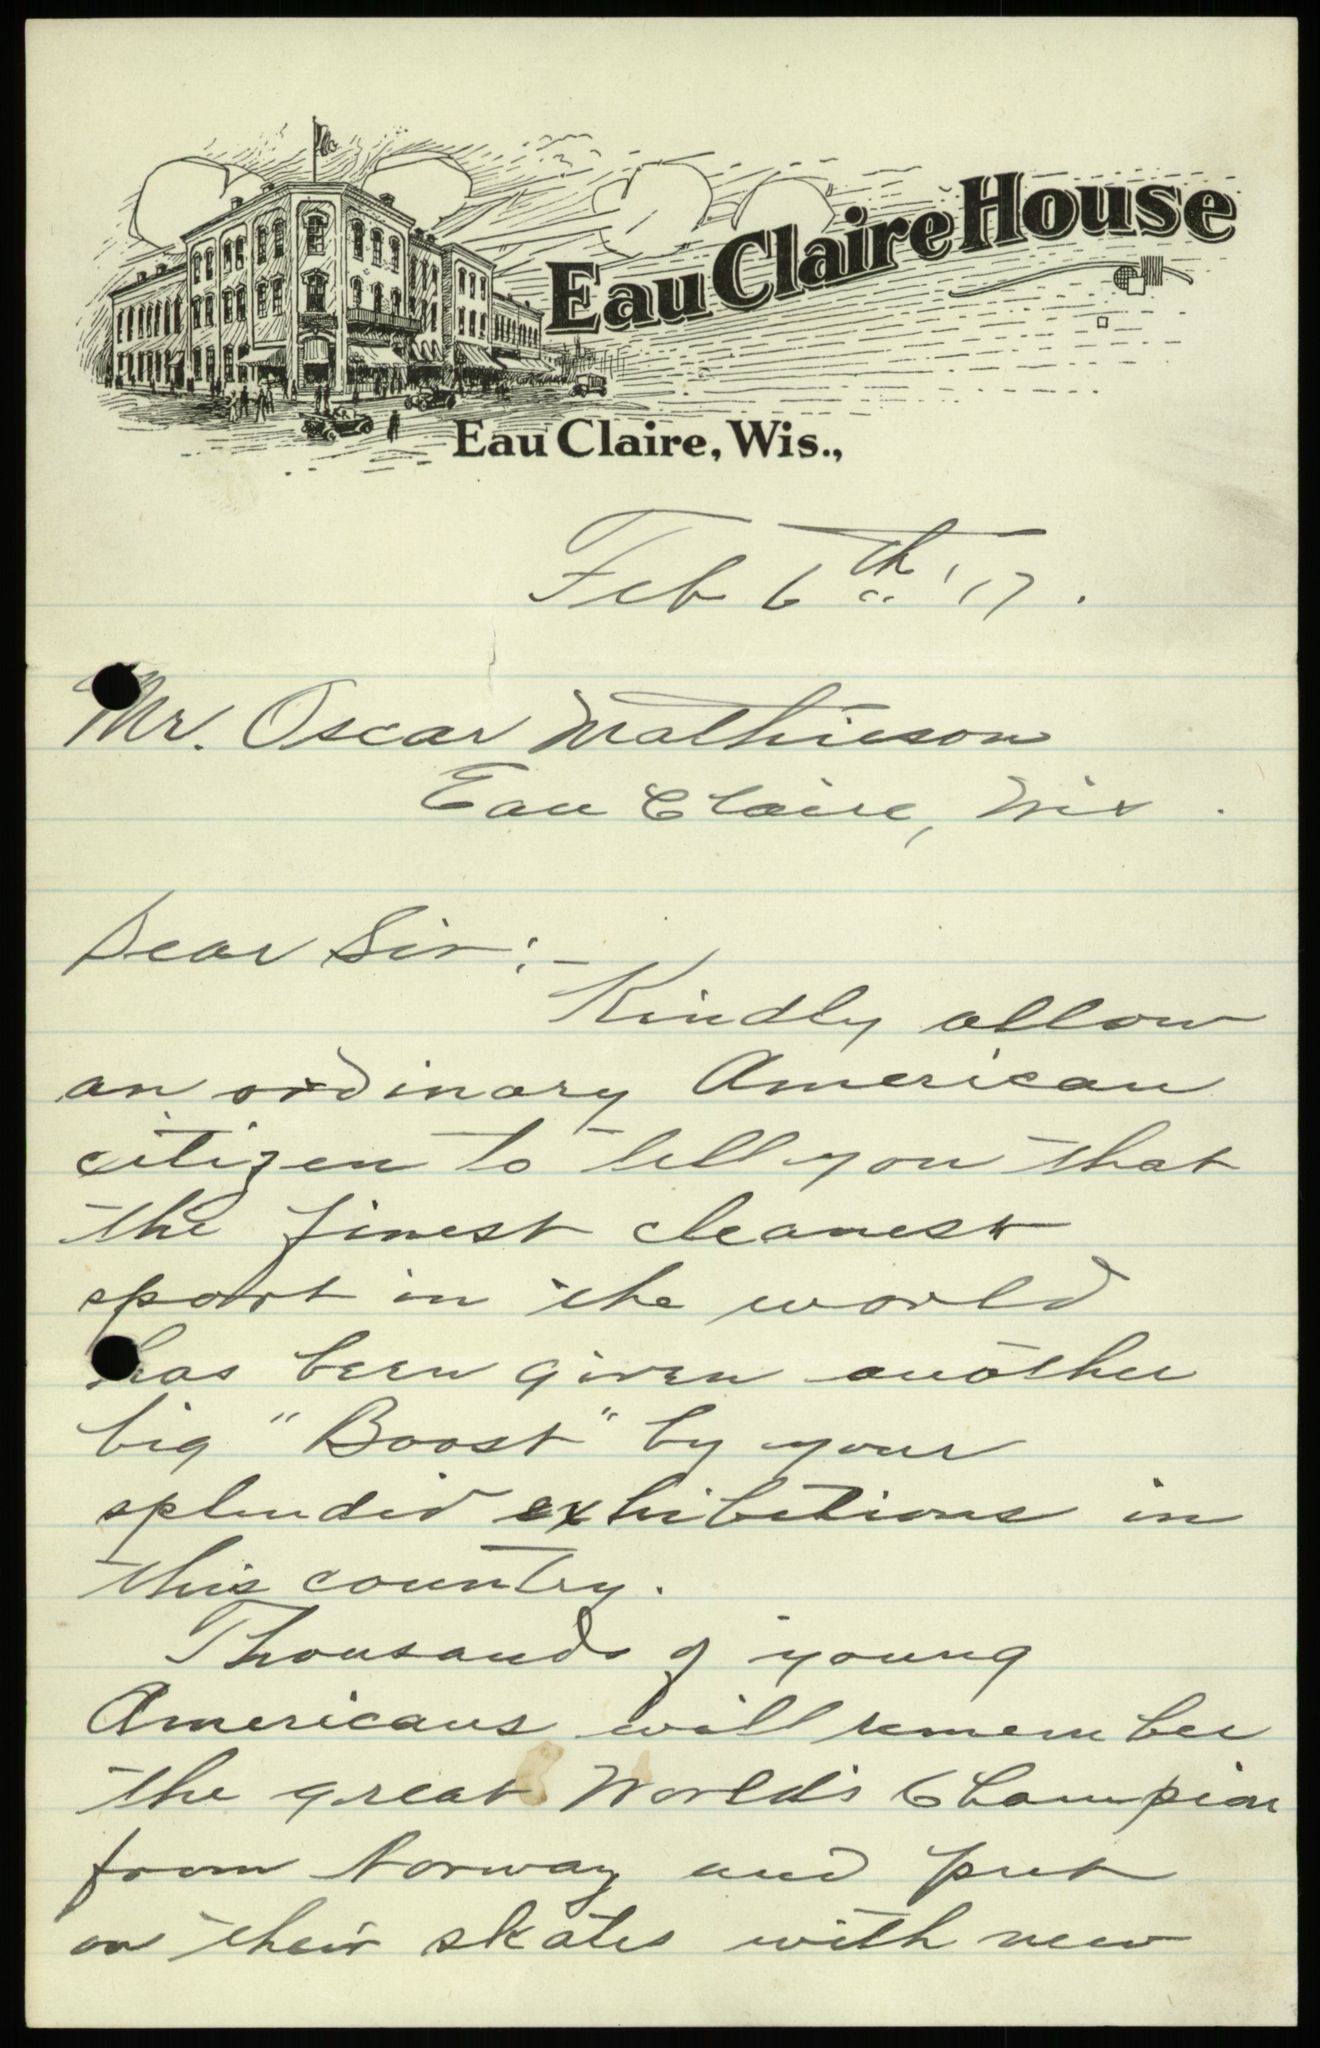 Eau Claire House
Eau Claire, Wis.,
Feb 6th '17.
Mr. Oscar Mathieson
Eau Claire, Wis.
Dear Sir:-
Kindly allow
an ordinary American
citizen to tell you that
the finest cleanest
sport in the world
has been given another
big "Boost" by your
splendid exhibitions in
this country.
Thousands of young
Americans will remember
the great World's Champion
from Norway and put
on their skates with new